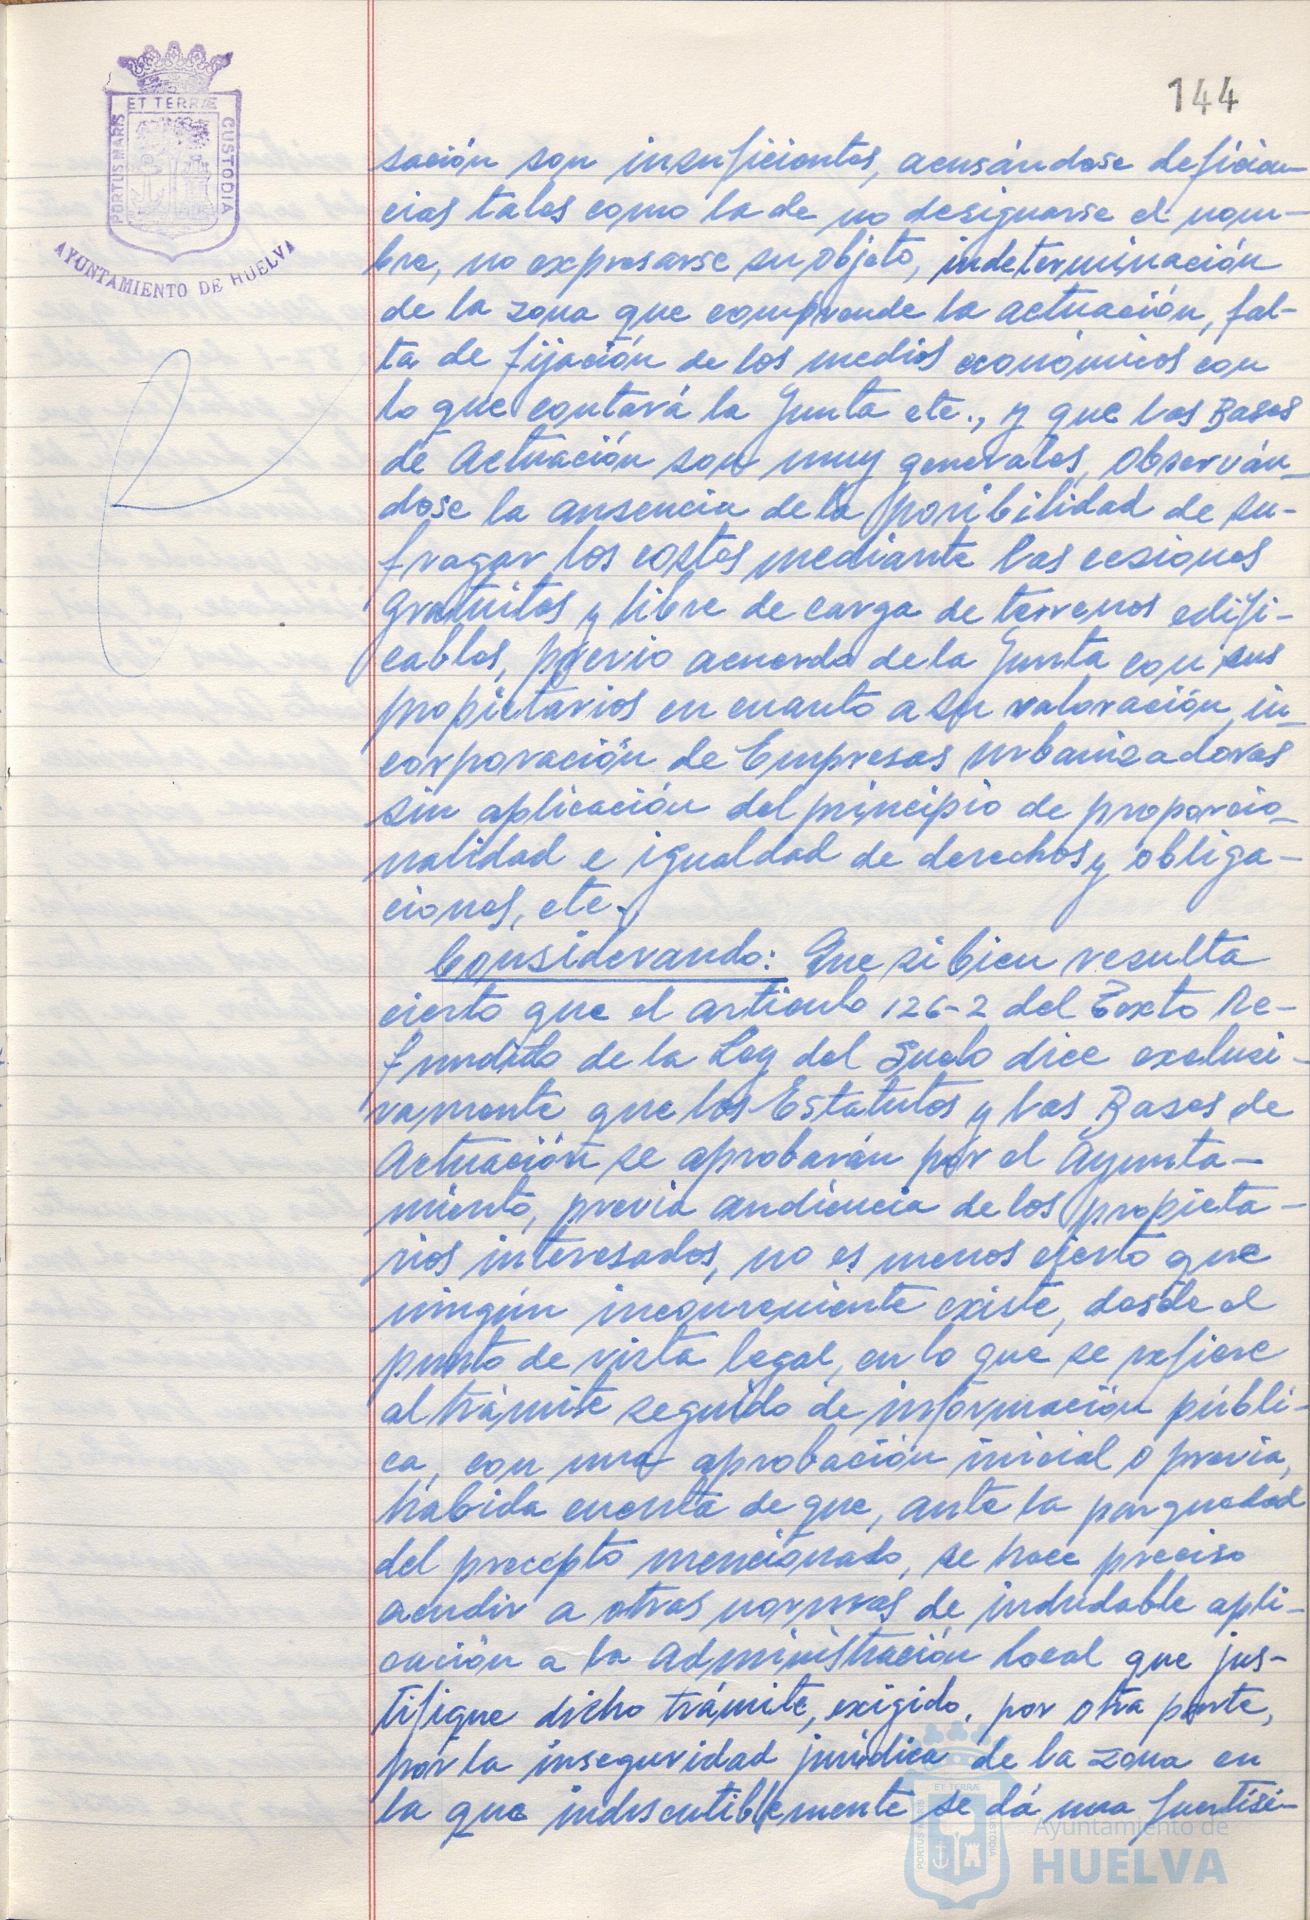 144
ET TERRÆ
PORTUS MARIS
CUSTODIA
AYUNTAMIENTO DE HUELVA
sación son insuficientes, acusándose deficien-
cias tales como la de no designarse el nom-
bre, no expresarse su objeto, indeterminación
de la zona que comprende la actuación, fal-
ta de fijación de los medios económicos con
lo que contará la Junta etc., y que las Bases
de Actuación son muy generales, observán-
dose la ausencia de la posibilidad de su-
fragar los costes mediante las cesiones
gratuitas y libre de carga de terrenos edifi-
cables, previo acuerdo de la Junta con sus
propietarios en cuanto a su valoración, in-
corporación de Empresas urbanizadoras
sin aplicación del principio de proporcio-
nalidad e igualdad de derechos y obliga-
ciones, etc.
Considerando: Que si bien resulta
cierto que el artículo 126-2 del Texto Re-
fundido de la Ley del Suelo dice exclusi-
vamente que los Estatutos y las Bases de
Actuación se aprobarán por el Ayunta-
miento, previa audiencia de los propieta-
rios interesados, no es menos cierto que
ningún inconveniente existe, desde el
punto de vista legal, en lo que se refiere
al trámite seguido de información públi-
ca, con una aprobación inicial o previa,
habida cuenta de que, ante la parquedad
del precepto mencionado, se hace preciso
acudir a otras normas de indudable apli-
cación a la Administración Local que jus-
tifique dicho trámite, exigido, por otra parte,
por la inseguridad jurídica de la zona en
la que indiscutiblemente se dá una fuertísi-
ET TERRÆ
PORTUS MARIS
CUSTODIA
Ayuntamiento de
HUELVA